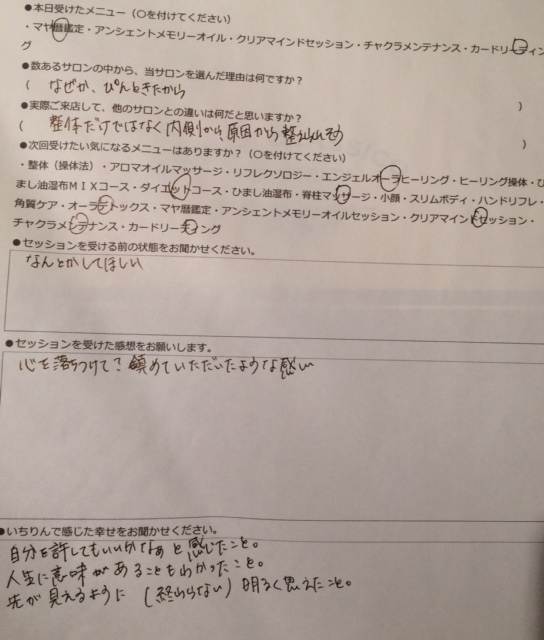 ●本日受けたメニュー（○を付けてください）
・マヤ暦鑑定・アンシェントメモリーオイル・クリアマインドセッション・チャクラメンテナンス・カードリーディン
グ
●数あるサロンの中から、当サロンを選んだ理由は何ですか？
（ なぜか、ぴんときたから ）
●実際ご来店して、他のサロンとの違いは何だと思いますか？
（ 整体だけではなく内側から、原因から整えられそう ）
●次回受けたい気になるメニューはありますか？（○を付けてください）
・整体（操体法）・アロマオイルマッサージ・リフレクソロジー・エンジェルオーラヒーリング・ヒーリング操体・ひ
まし油湿布ＭＩＸコース・ダイエットコース・ひまし油湿布・脊柱マッサージ・小顔・スリムボディ・ハンドリフレ・
角質ケア・オーラデトックス・マヤ暦鑑定・アンシェントメモリーオイルセッション・クリアマインドセッション・
チャクラメンテナンス・カードリーディング
●セッションを受ける前の状態をお聞かせください。
なんとかしてほしい
●セッションを受けた感想をお願いします。
心を落ちつけて？鎮めていただいたような感い
●いちりんで感じた幸せをお聞かせください。
自分を許してもいいかなぁと感じたこと。
人生に意味があることもわかったこと。
先が見えるように（終わらない）明るく思えたこと。